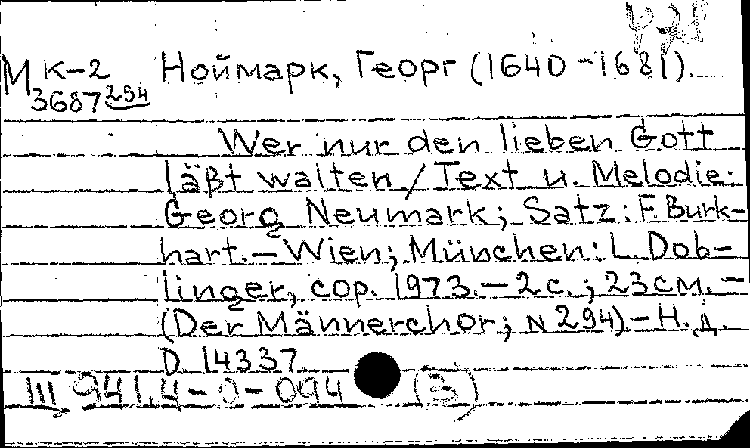 М К-2 Ноймарк, Георг (1640-1681).
3687 294
Wer nur den lieben Gott
läßt walten / Text u. Melodie:
Georg Neumark; Satz: F. Burk-
hart. – Wien; München: L. Dob-
linger, cop. 1973. – 2 с.; 23 см. –
(Der Männerchor; N 294). – Н. д.
D. 14337.
III 941.4-0-094 (3)